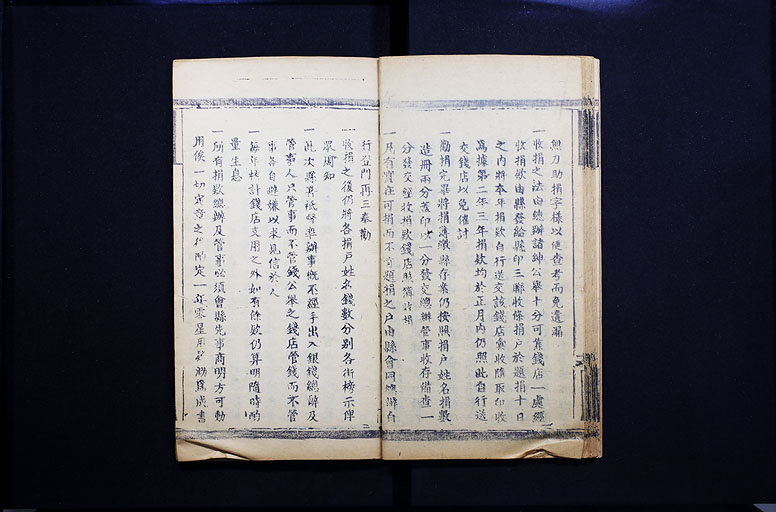 無力助捐字樣以便查考而免遺漏
一收捐之法由總辦諸紳公舉十分可靠錢店一處經
收捐欵由縣發給縣印三聯收條捐戶於題捐十日
之內將本年捐欵自行送交該錢店彙收隨取印收
為據第二年三年捐欵均於正月內仍照此自行送
交錢店以免催討
一勸捐完畢將捐簿繳縣存案仍按照捐戶姓名捐數
造冊兩分蓋印以一分發交總辦管事收存備查一
分發交經收捐欵錢店照簿收捐
一凡有實在可捐而不肯題捐之戶由縣會同總辦自
行登門再三奉勸
一收捐之後仍將各捐戶姓名錢數分別各街榜示俾
眾周知
一此次縣署祗督率辦事概不經手出入銀錢總辦及
管事人只管事而不管錢公舉之錢店管錢而不管
事各自避嫌以求見信於人
一每年核計錢店支用之外如有餘欵仍算明隨時酌
量生息
一所有捐欵總辦及管事必須會縣先事商明方可動
用俟一切定章之後酌定一年零星用款若為成書